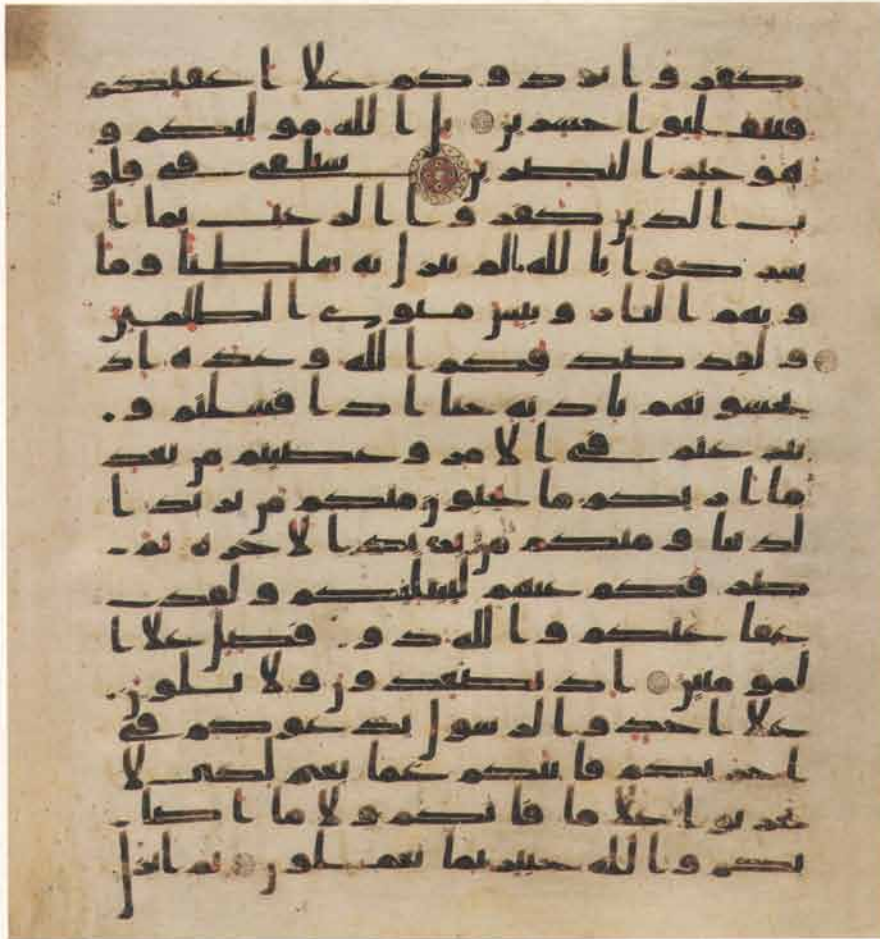 كفروا يردوكم علا اعقبكم
فتنقلبوا خسرين بل الله موليكم و
هو خير النصرين سنلقى فى قلو
ب الذين كفروا الرعب بما ا
شركوا بالله ما لم ينزل به سلطنا وما
ويهم النار وبيس مثوى الظلمين
ولقد صدقكم الله وعده اذ
تحسونهم باذنه حتا اذا فشلتم و
تنزعتم فى الامر وعصيتم من بعد
ما اريكم ما تحبون منكم من يريد ا
لدنيا ومنكم من يريد الاخره ثم
صرفكم عنهم ليبتليكم ولقد
عفا عنكم والله ذو فضل علا ا
لمومنين اذ تصعدون ولا تلون
علا احد والرسول يدعوكم فى
اخريكم فاثبكم غما بغم لكى لا
تحزنوا علا ما فاتكم ولا ما اصا
بكم والله خبير بما تعملون ثم انزل